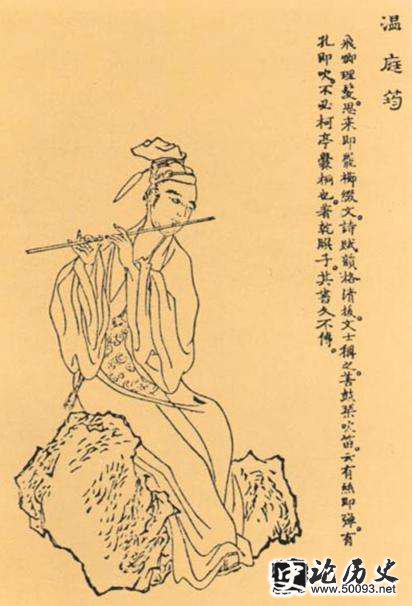 温庭筠
飛卿理髮思来即罷櫛綴文。詩賦韻格清拔文士稱之。善鼓琴吹笛。云有絲即彈。有
孔即吹。不必柯亭爨桐也。著乾𦠆子。其書久不傳。
论历史
www.50093.net